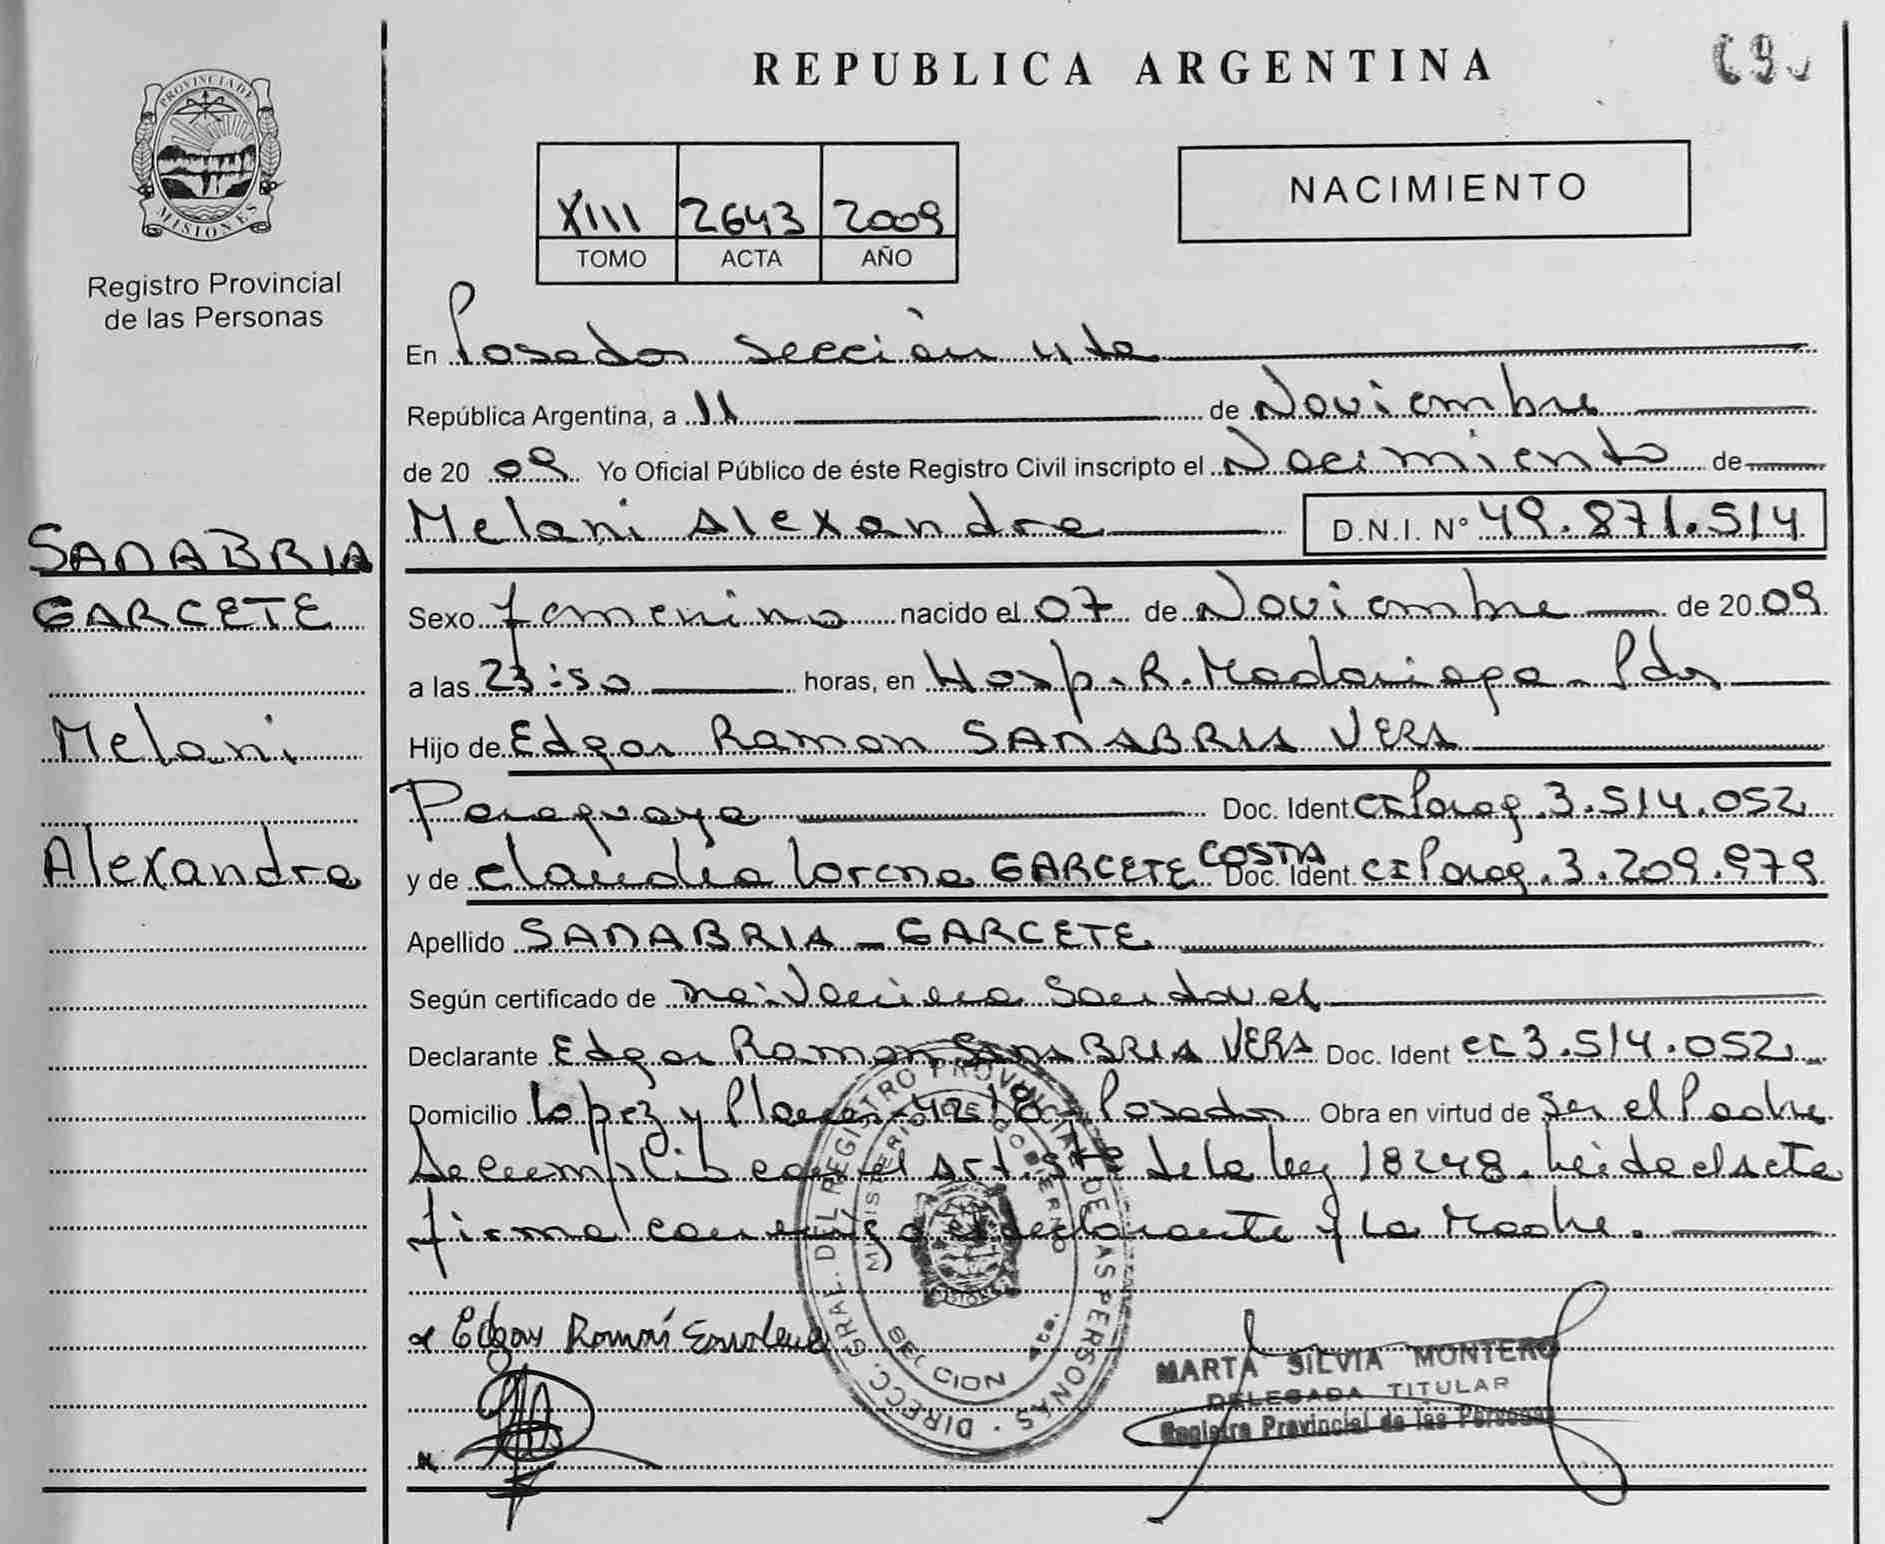 REPUBLICA ARGENTINA
PROVINCIA DE
MISIONES
Registro Provincial
de las Personas
NACIMIENTO
XIII 2643 2009
TOMO ACTA AÑO
En Posadas Sección 4ta
República Argentina, a 11 de Noviembre
de 20 09 Yo Oficial Público de éste Registro Civil inscripto el Nacimiento de
Melani Alexandra D.N.I. N° 49.871.514
SANABRIA
GARCETE
Melani
Alexandra
Sexo femenino nacido el 07 de Noviembre de 20 09
a las 23:50 horas, en Hosp. R. Madariaga - Pdas
Hijo de Edgar Ramon SANABRIA VERA
Paraguaya Doc. Ident. CI Parag. 3.514.052
y de Claudia Lorena GARCETE COSTA Doc. Ident. CI Parag. 3.209.979
Apellido SANABRIA - GARCETE
Según certificado de Sandoval
Declarante Edgar Ramon SANABRIA VERA Doc. Ident CI 3.514.052
Domicilio Lopez y Planes Posadas Obra en virtud de ser el Padre
Se cumplió con el art. de la ley 18248. Leida el acta
firma conmigo el declarante y la Madre.
Edgar Ramón
DIRECC. GRAL. DEL REGISTRO PROVINCIAL DE LAS PERSONAS
MINISTERIO DE GOBIERNO
MISIONES
4ta.
MARTA SILVIA MONTERO
DELEGADA TITULAR
Registro Provincial de las Personas